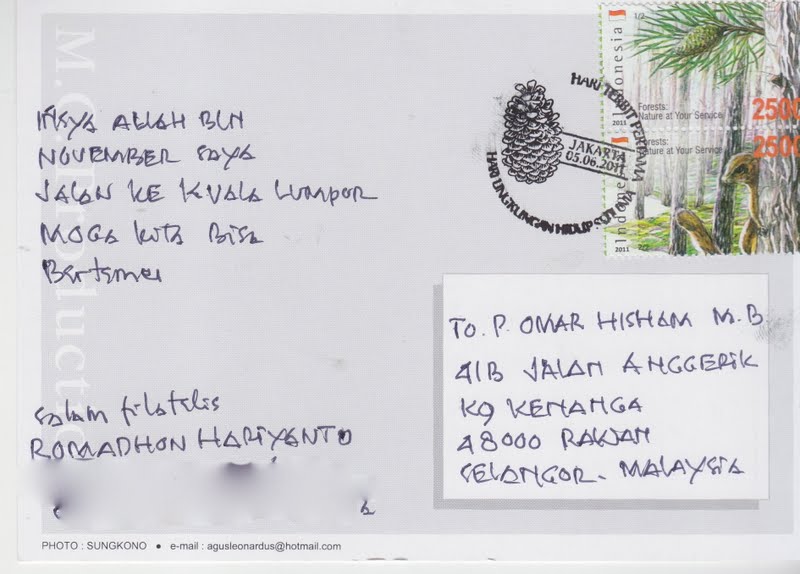 M.G Productio
INSYA ALLAH BLN
NOVEMBER SAYA
JALAN KE KUALA LUMPUR
MOGA KITA BISA
Bertemu
salam filatelis
ROMADHON HARIYANTO
PHOTO : SUNGKONO ● e-mail : agusleonardus@hotmail.com
HARI TERBIT PERTAMA
JAKARTA
05.06.2011
HARI LINGKUNGAN HIDUP
Indonesia
1/2
2011
Forests:
Nature at Your Service
2500
Indonesia
2011
Forests:
Nature at Your Service
2500
TO. P. OMAR HISHAM M.B
41B JALAN ANGGERIK
KG KENANGA
48000 RAWAN
SELANGOR - MALAYSIA